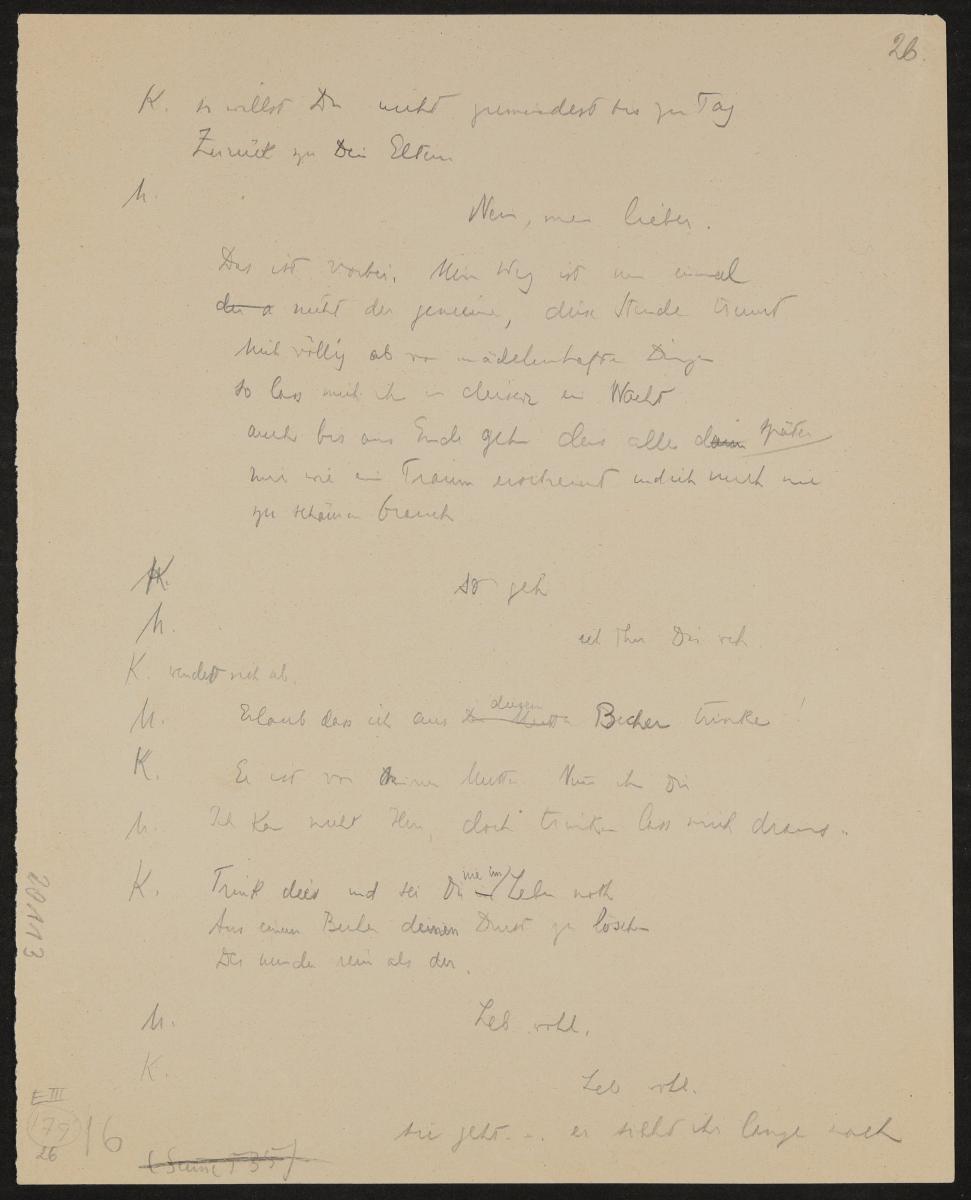 26.
K. so willst Du nicht zumindest bis zum Tag
Zurück zu Dein Eltern
M.
Nein, mein lieber.
Das ist vorbei. Mein Weg ist nun einmal
nicht der gemeine, diese Stunde trennt
Mich völlig ab von mädchenhaften Dingen
So lass mich in dieser Nacht
auch bis ans Ende gehn dass alles später
mir wie ein Traum erscheint und ich mich nie
zu schämen brauch
K.
So geh
M.
ich thu Dir weh.
K. wendet sich ab.
M. Erlaub dass ich aus diesem Becher trinke!
K. Er ist von meiner Mutter. Nimm ihn Dir
M. Ich kann nicht Herr, doch trinken lass mich draus..
K. Trink dies und sei Dir nie im Leben noth
Aus einem Becher deinen Durst zu löschen
Der minder rein als der.
M.
Leb wohl.
K.
Leb wohl.
sie geht... er sieht ihr lange nach
20113
E III
179
26
16